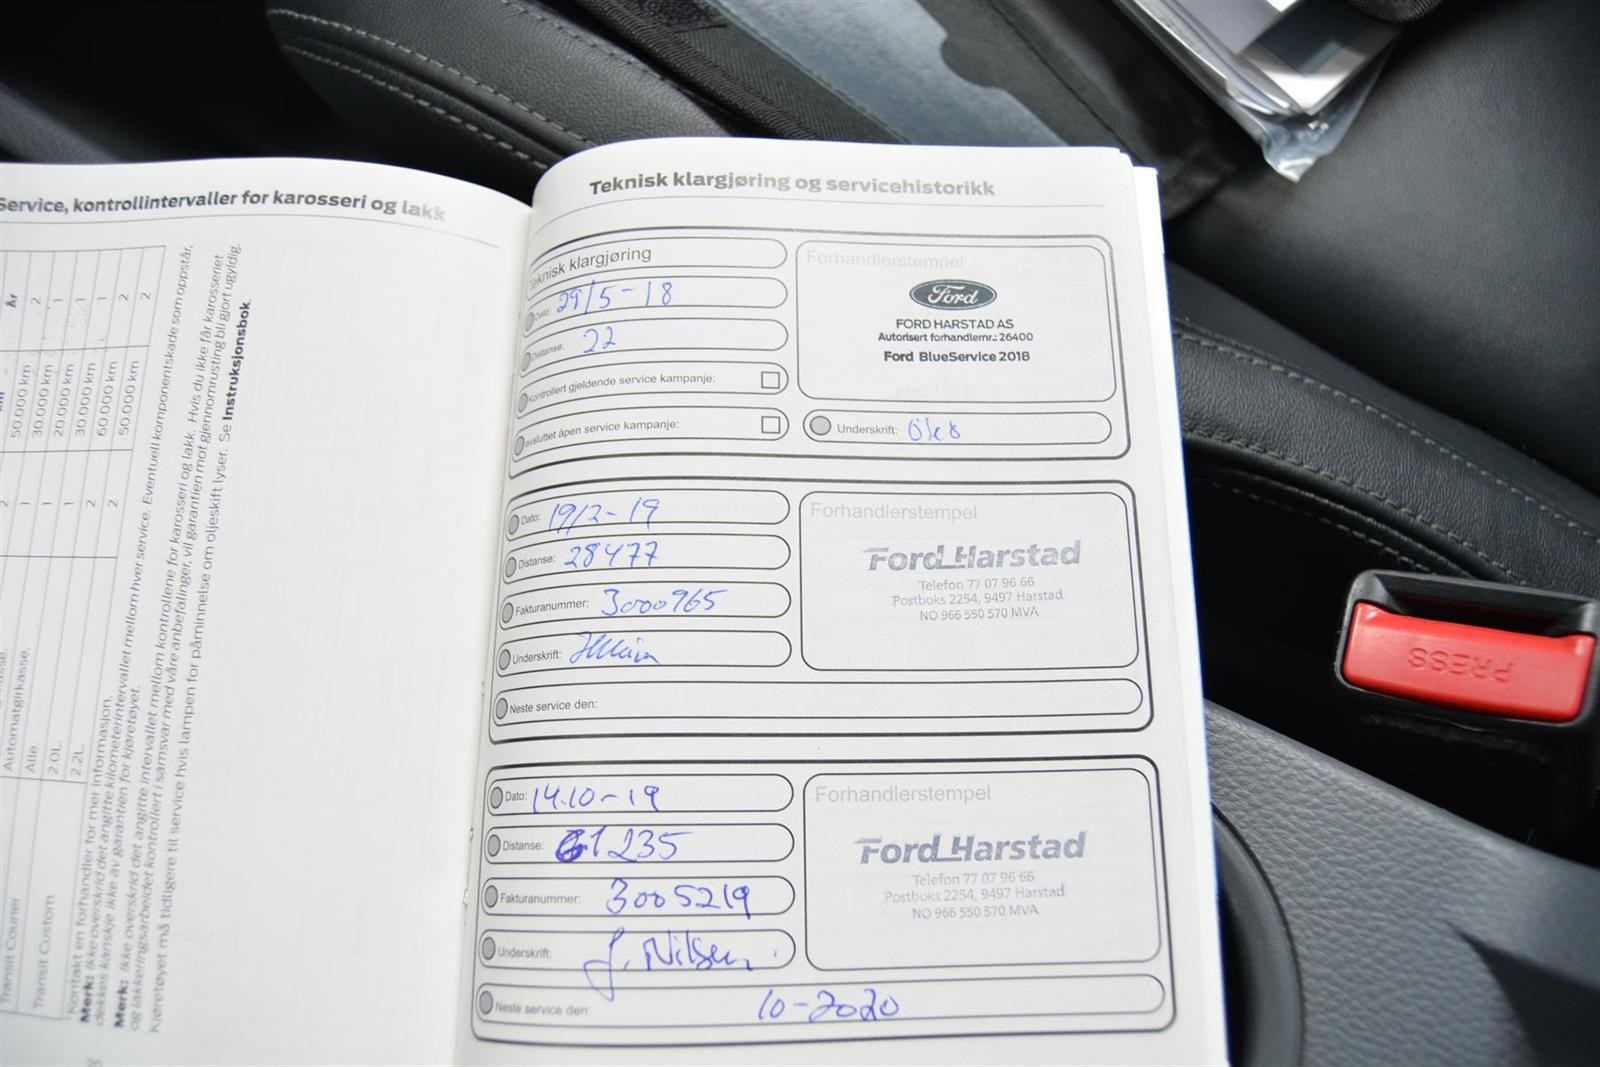 Service, kontrollintervaller for karosseri og lakk
År
50.000 km
2
30.000 km
1
20.000 km
1
30.000 km
1
60.000 km
2
50.000 km
2
2
1
1
1
2
2
Automatgirkasse.
Alle.
2.0L.
2.2L.
Transit Courier
Transit Custom
Kontakt en forhandler for mer informasjon.
Merk: Ikke overskrid det angitte kilometerintervallet mellom hver service. Eventuell komponentskade som oppstår,
dekkes kanskje ikke av garantien for kjøretøyet.
Merk: Ikke overskrid det angitte intervallet mellom kontrollene for karosseri og lakk. Hvis du ikke får karosseriet
og lakkeringsarbeidet kontrollert i samsvar med våre anbefalinger, vil garantien mot gjennomrusting bli gjort ugyldig.
Kjøretøyet må tidligere til service hvis lampen for påminnelse om oljeskift lyser. Se Instruksjonsbok.
Teknisk klargjøring og servicehistorikk
Teknisk klargjøring
Dato: 29/5-18
Distanse: 22
Kontrollert gjeldende service kampanje:
avsluttet åpen service kampanje:
Forhandlerstempel
Ford
FORD HARSTAD AS
Autorisert forhandlernr.: 26400
Ford BlueService 2018
Underskrift:
Dato: 19/2-19
Distanse: 28477
Fakturanummer: 3000965
Underskrift:
Neste service den:
Forhandlerstempel
Ford Harstad
Telefon 77 07 96 66
Postboks 2254, 9497 Harstad
NO 966 550 570 MVA
Dato: 14.10-19
Distanse: 61235
Fakturanummer: 3005219
Underskrift: J. Nilsen
Neste service den: 10-2020
Forhandlerstempel
Ford Harstad
Telefon 77 07 96 66
Postboks 2254, 9497 Harstad
NO 966 550 570 MVA
PRESS